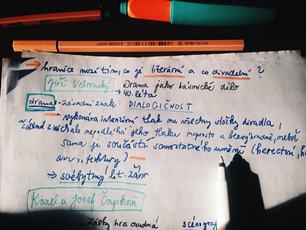 → hranice mezi tím, co je literární a co divadelní?
Jiří Veltruský Drama jako básnické dílo
40. léta
drama - závazní znak: DIALOGIČNOST
→ vykonává intenzivní tlak na všechny složky divadla,
žádná z nich ale nepodléhá jeho tlaku naprosto a bezvýhradně, neboť
sama je součástí samostatného umění (herectví, hu
architektury)
→ svébytný lit. žánr
Karel a Josef Čapkové
Lásky hra osudná scénograf